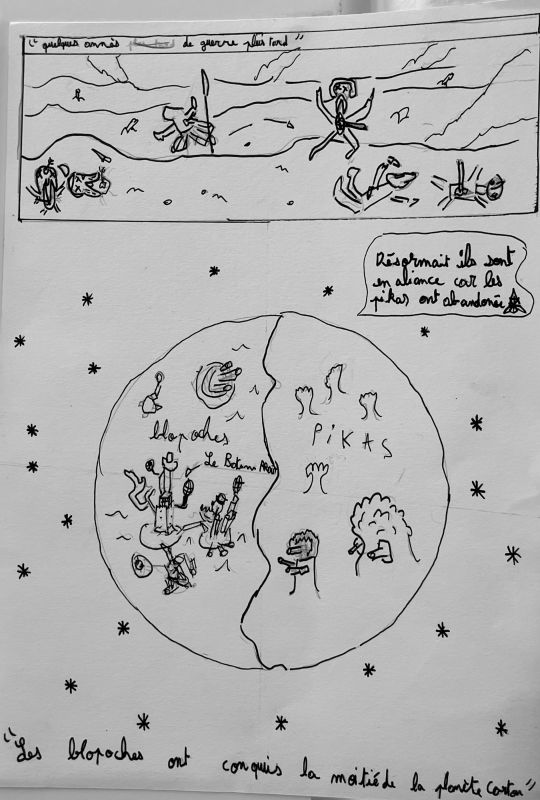 "quelques annés de guerre plus tard"
Désormait ils sont
en aliance car les
pikas ont abandonée
blopoches
PiKAS
Le
"Les blopoches ont conquis la moitié de la planète Carton"